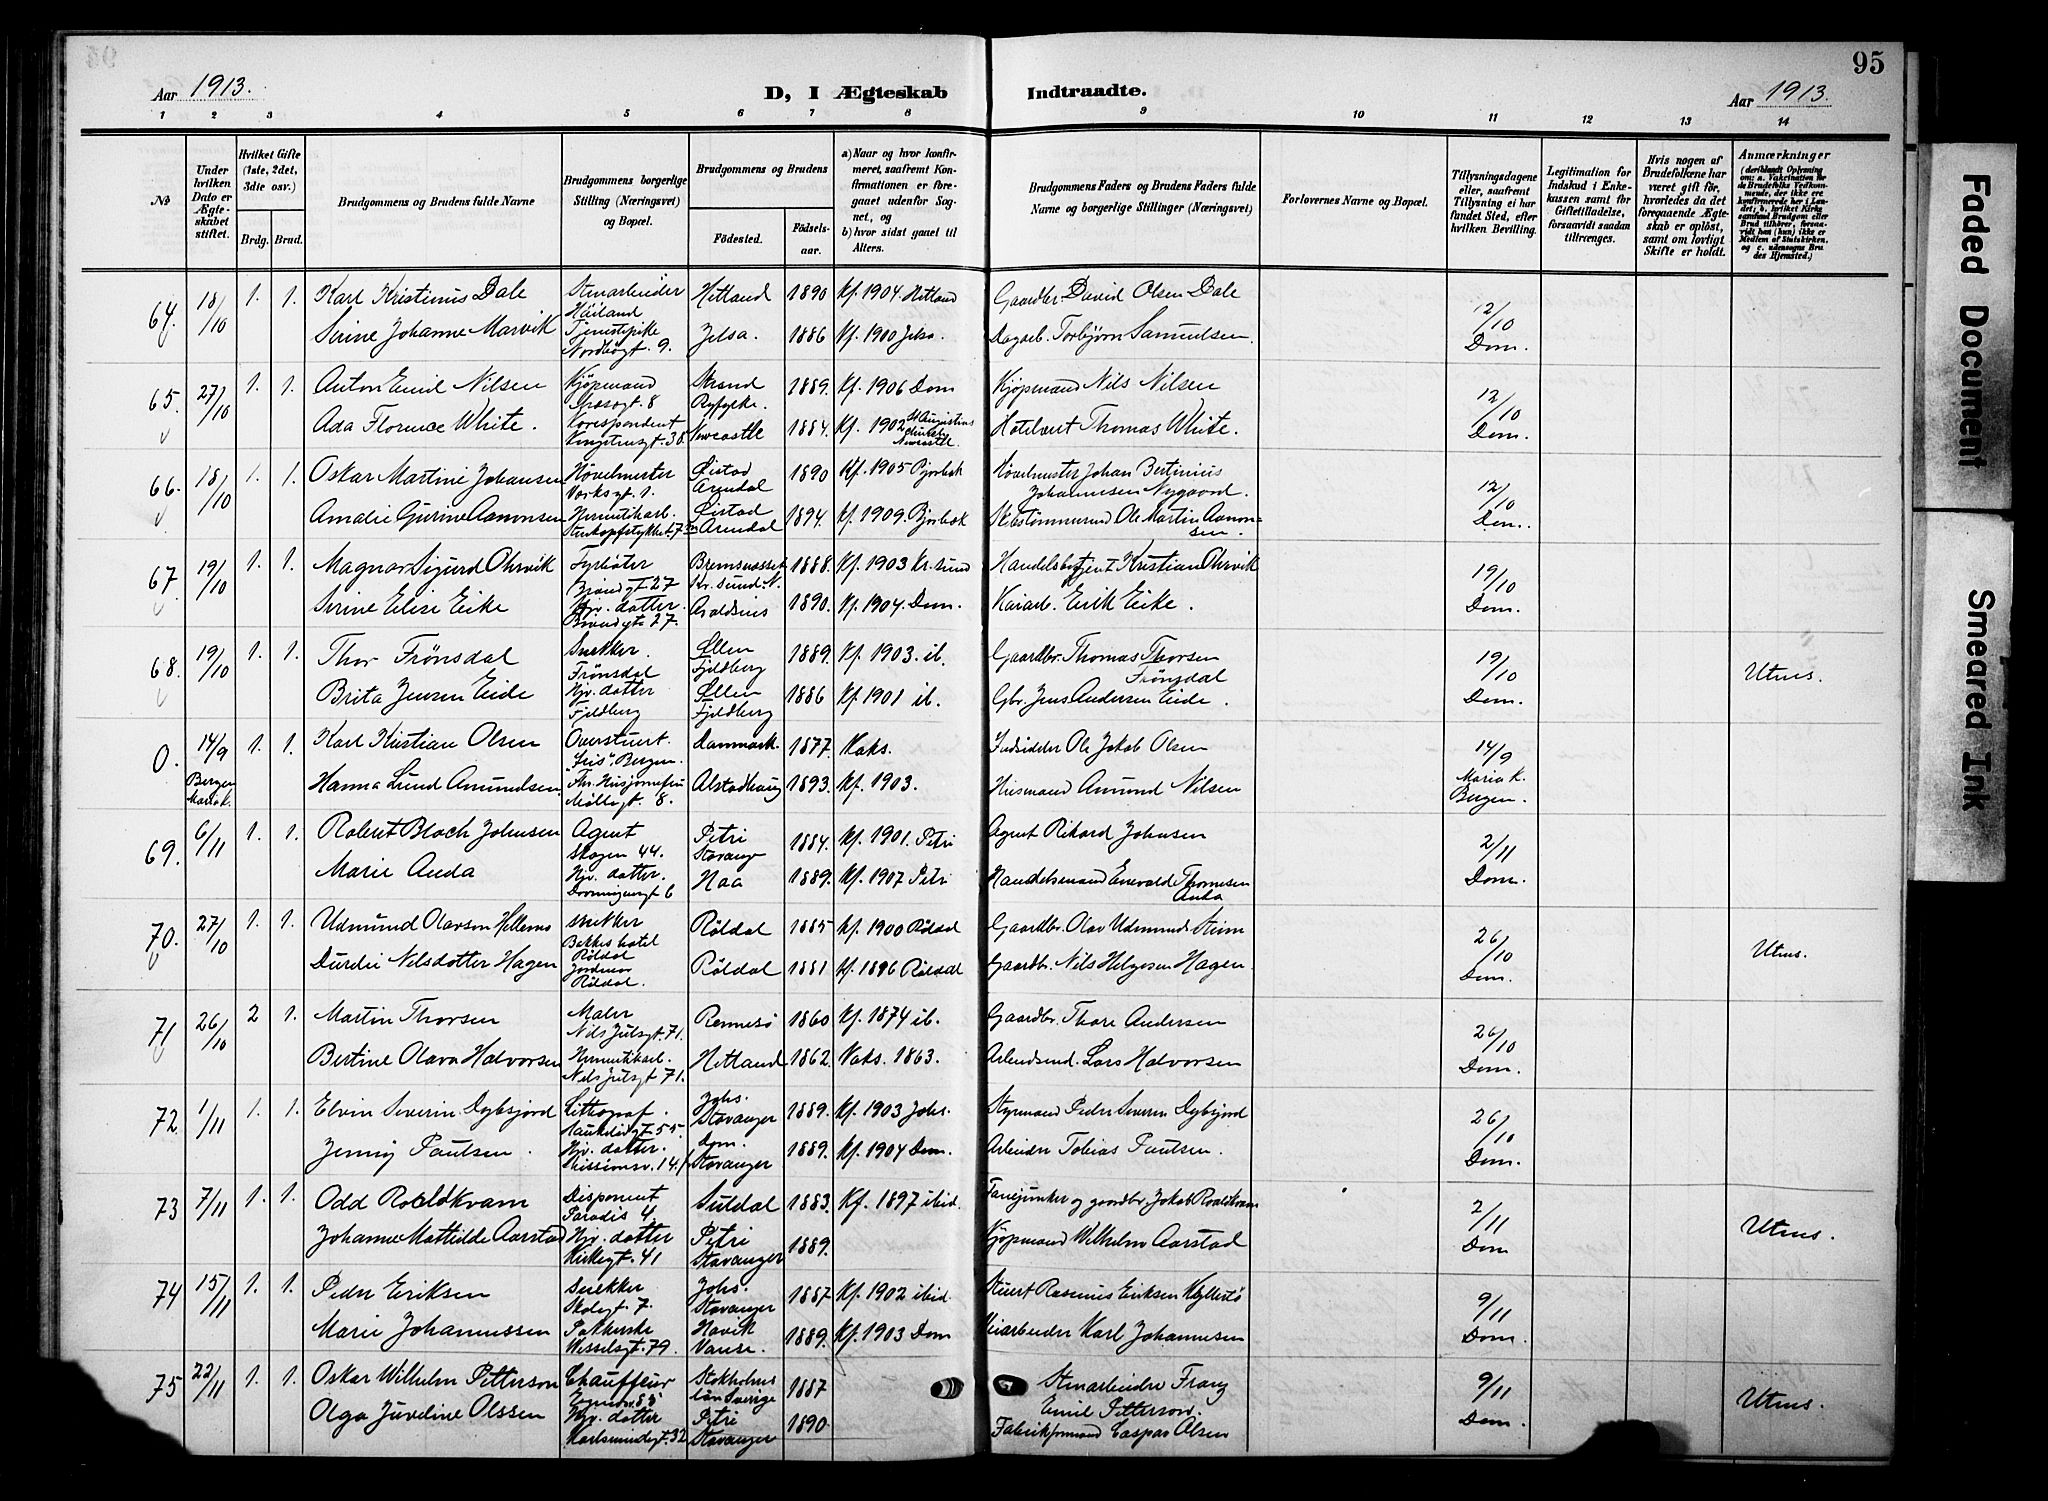 95
Aar 1913.
D, I Ægteskab Indtraadte.
Aar 1913.
1 2 3 4 5 6 7 8 9 10 11 12 13 14
№
Under hvilken Dato er Ægteskabet stiftet.
Hvilket Gifte (1ste, 2det, 3die osv.)
Brdg. Brud.
Brudgommens og Brudens fulde Navne
Brudgommens borgerlige Stilling (Næringsvei) og Bopæl.
Brudgommens og Brudens
Fødested.
Fødselsaar.
a) Naar og hvor konfirmeret, saafremt Konfirmationen er foregaaet udenfor Sognet, og
b) hvor sidst gaaet til Alters.
Brudgommens Faders og Brudens Faders fulde Navne og borgerlige Stillinger (Næringsvei)
Forlovernes Navne og Bopæl.
Tillysningsdagene eller, saafremt Tillysning ei har fundet Sted, efter hvilken Bevilling.
Legitimation for Indskud i Enkekassen samt for Giftetilladelse, forsaavidt saadan tiltrænges.
Hvis nogen af Brudefolkene har været gift før, hvorledes da det foregaaende Ægteskab er opløst, samt om lovligt Skifte er holdt.
Anmærkninger
64. 18/10 1. 1. Karl Kristinius Dale Stenarbeider Håiland Hetland 1890 Kf. 1904. Hetland Gaardbr. David Olsen Dale 12/10 Dom.
Serine Johanne Marvik Tjenestepike Nordbögt. 9. Jelsa. 1886 Kf. 1900 Jelsa. Dagarb. Torbjörn Samuelsen.
65. 27/10 1. 1. Anton Emil Nilsen Kjöpmand 8 Strand Ryfylke. 1889. Kf. 1906 Dom Kjöpmand Nils Nilsen 12/10 Dom.
Ada Florence White. Korespondent Kongensgt. 38. Newcastle 1884. Kf. 1902 St. Augustins Newcastle. Hotelvert Thomas White.
66. 18/10 1. 1. Oskar Martin Johansen Hövelmester Verksgt. 1. Öistad Arendal 1890 Kf. 1905 Bjorbæk Hövelmester Johan Bertinius Johannesen Nygaard. 12/10 Dom.
Amalie Gurine Aanonsen Hermetikarb. Öistad Arendal 1894. Kf. 1909. Bjorbæk Skibstömmermd Ole Martin Aanonsen.
67. 19/10 1. 1. Magnar Sigurd Ohrvik Fyrböter Brandgt. 27 Bremsnesset Kr.sund N. 1888. Kf. 1903 Kr.sund Handelsbetjent Kristian Ohrvik 19/10 Dom.
Serine Elise Eike Hjv. datter. Brandgt. 27. Avaldsnes 1890. Kf. 1904. Dom. Kaiarb. Erik Eike.
68. 19/10 1. 1. Thor Frönsdal Snekker. Frönsdal Ölen Fjeldberg 1889. Kf. 1903. ib. Gaardbr. Thomas Thorsen Frönsdal 19/10 Dom. Utms.
Brita Jensen Eide Hjv. datter Fjeldberg Ölen Fjeldberg 1886 Kf. 1901 ib. Gbr. Jens Andersen Eide.
0. 14/9 Bergen Mariak. 1. 1. Karl Kristian Olsen Overstuert. "Iris", Bergen. Danmark. 1877. Vaks. Indsidder Ole Jakob Olsen 14/9 Mariak. Bergen.
Hanna Lund Amundsen. Möllegt. 8. Alstadhaug 1893. Kf. 1903. Husmand Amund Nilsen
69. 6/11 1. 1. Robert Bloch Johnsen Agent Skagen 44. Petri Stavanger 1884. Kf. 1901. Petri Agent Rikard Johnsen 2/11 Dom.
Marie Anda Hjv. datter. Dronningensgt. 6 Haa 1889. Kf. 1907 Petri Handelsmand Enevald Thomesen Anda
70. 27/10 1. 1. Udmund Olavson Hellernes Snekker Bakkes hotel Röldal Röldal 1885 Kf. 1900 Röldal Gaardbr. Olav Udmunds. Steine 26/10 Dom. Utms.
Durdei Nilsdotter Hagen Jordmor Röldal. Röldal 1881 Kf. 1896 Röldal Gaardbr. Nils Helgesen Hagen.
71 26/10 2 1. Martin Thorsen Maler Nils Juelsgt. 71. Rennesö 1860 Kf. 1874 ib. Gaardbr. Thore Andersen 26/10 Dom.
Bertine Olava Halvorsen Hermetikarb. Nils Juelsgt 71. Hetland 1862. Vaks. 1863. Arbeidsmd. Lars Halvorsen
72. 1/11 1. 1. Elvin Severin Dybsjord Lithograf. Haukeligt. 55. Johs. Stavanger 1889. Kf. 1903 Johs. Styrmand Peder Severin Dybsjord 26/10 Dom.
Jenny Paulsen. Hjv. datter. Missionsv. 14. Dom. Stavanger 1889. Kf. 1904 Dom. Arbeider Tobias Paulsen.
73 7/11 1. 1. Odd Roaldkvam Disponent Paradis 4. Suldal 1883. Kf. 1897 ibid. Fanejunker og gaardbr. Jakob Roaldkvam 2/11 Dom Utms.
Johanne Mathilde Aarstad Hjv. datter Kirkegt. 41 Petri Stavanger 1889. Kjöpmand Wilhelm Aarstad
74 15/11 1. 1. Peder Eriksen Snekker Skolegt. 7. Johs. Stavanger 1887 Kf. 1902 ibid. Stuert Rasmus Eriksen 9/11 Dom.
Marie Johannessen Pakkerske Wesselsgt. 79. Havik Vanse. 1889. Kf. 1903 Dom Karl Johannesen
75 22/11 1. 1. Oskar Wilhelm Petterson Chauffeur Stokholms län Sverige 1887 Stenarbeider Franz Emil Petterson. 9/11 Dom. Utms.
Olga Juveline Olssen Hjv. datter Karlsmindegt. 32 Petri Stavanger 1890. Fabrikformand Caspar Olsen
Faded Document
Smeared Ink